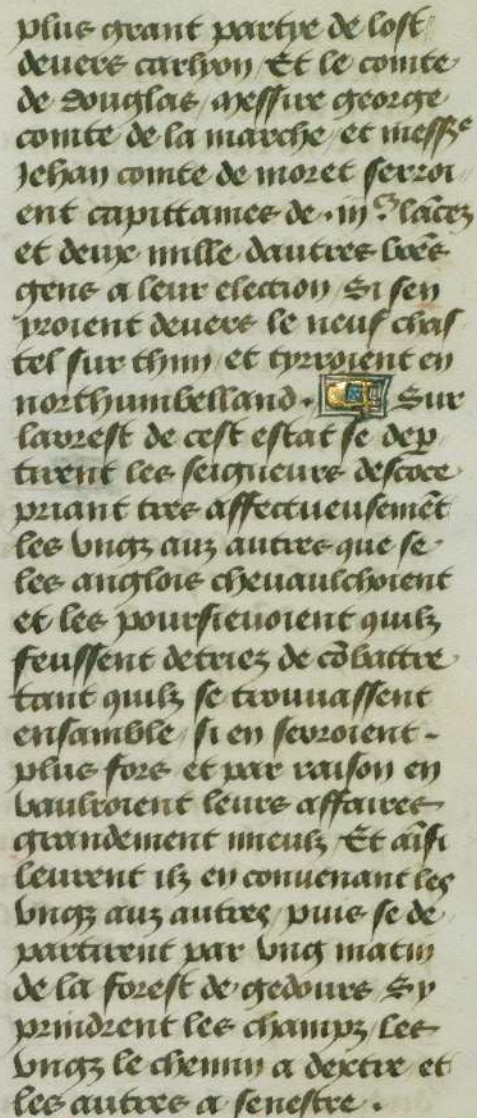 plus grant partye de lost
devers carlyon / Et le comte
de douglas / messire george
comte de la marche / et mess.e
Jehan comte de moret serroi
ent capittaines de .iij.c lãces
et deux mille dautres bõs
gens a leur election / Si sen
yroient devers le neuf chas
tel sur thin / et tyrroient en
northumbelland . Sur
larrest de cest estat se dep
tirent les seigneurs descoce
priant tres affectueusemẽt
les vngz auz autres que se
les anglois chevaulchoient
et les poursievoient quilz
feussent detriez de cõbattre
tant quilz se trouvassent
ensamble / si en serroient -
plus fors et par raison en
vaulroient leurs affaires
grandement mieulz / Et aĩsi
leurent ilz en convenant les
vngz auz autres / puis se de
partirent par vng matin
de la forest de gedours Sy
prindrent les champz / les
vngz le chemin a dextre et
les autres a senestre .